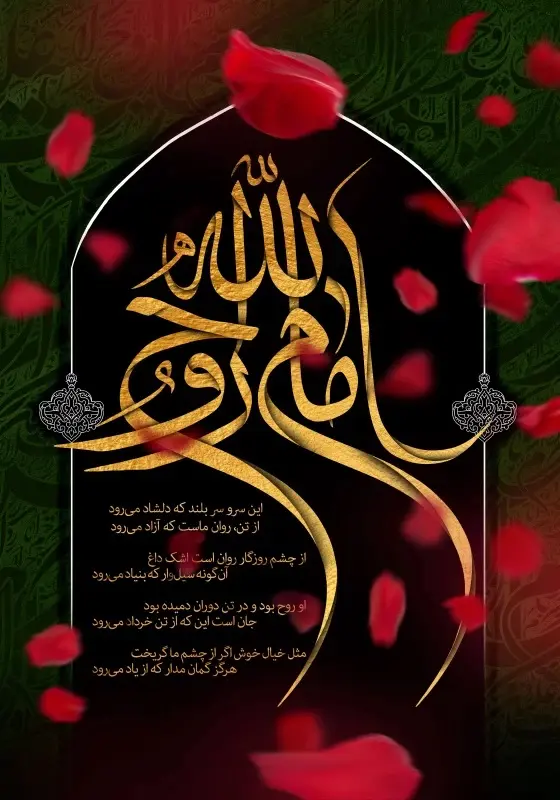 امام روح الله
این سرو سر بلند که دلشاد می‌رود
از تن، روان ماست که آزاد می‌رود
از چشم روزگار روان است اشک داغ
آن‌گونه سیل‌وار که بنیاد می‌رود
او روح بود و در تن دوران دمیده بود
جان است این که از تن خرداد می‌رود
مثل خیال خوش اگر از چشم ما گریخت
هرگز گمان مدار که از یاد می‌رود